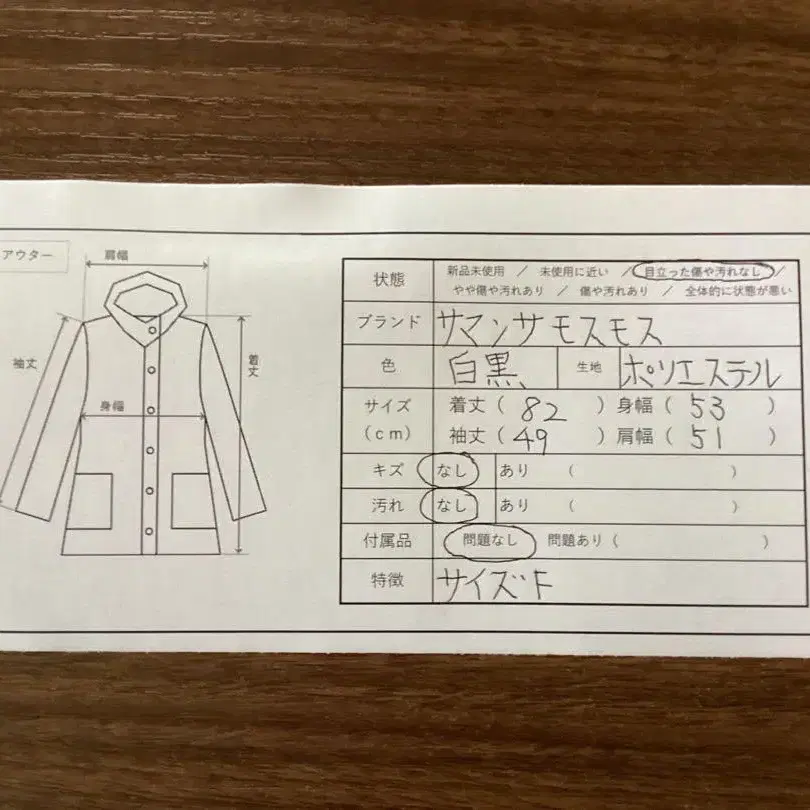 アウター
肩幅
袖丈
着丈
身幅
状態 新品未使用 / 未使用に近い / 目立った傷や汚れなし /
やや傷や汚れあり / 傷や汚れあり / 全体的に状態が悪い
ブランド サマンサモスモス
色 白黒 生地 ポリエステル
サイズ 着丈 ( 82 ) 身幅 ( 53 )
(cm) 袖丈 ( 49 ) 肩幅 ( 51 )
キズ なし あり ( )
汚れ なし あり ( )
付属品 問題なし 問題あり ( )
特徴 サイズF